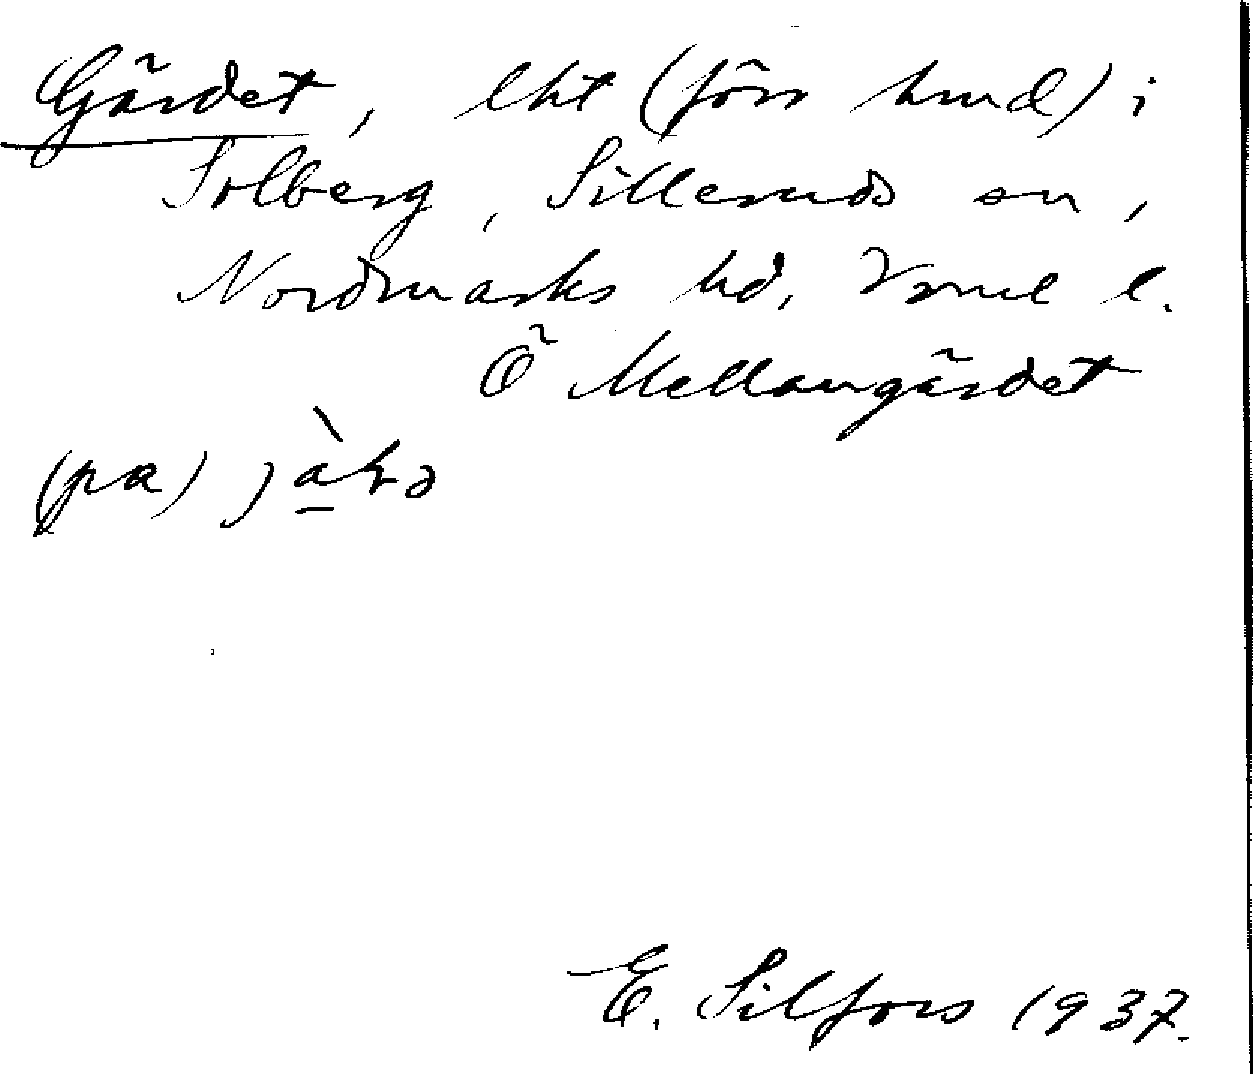 Gärdet, lht (förr hmd) i
Solberg, Silleruds sn,
Nordmarks hd, Vrml l.
Ö Mellangärdet
(pa)
E. Silfors 1937.